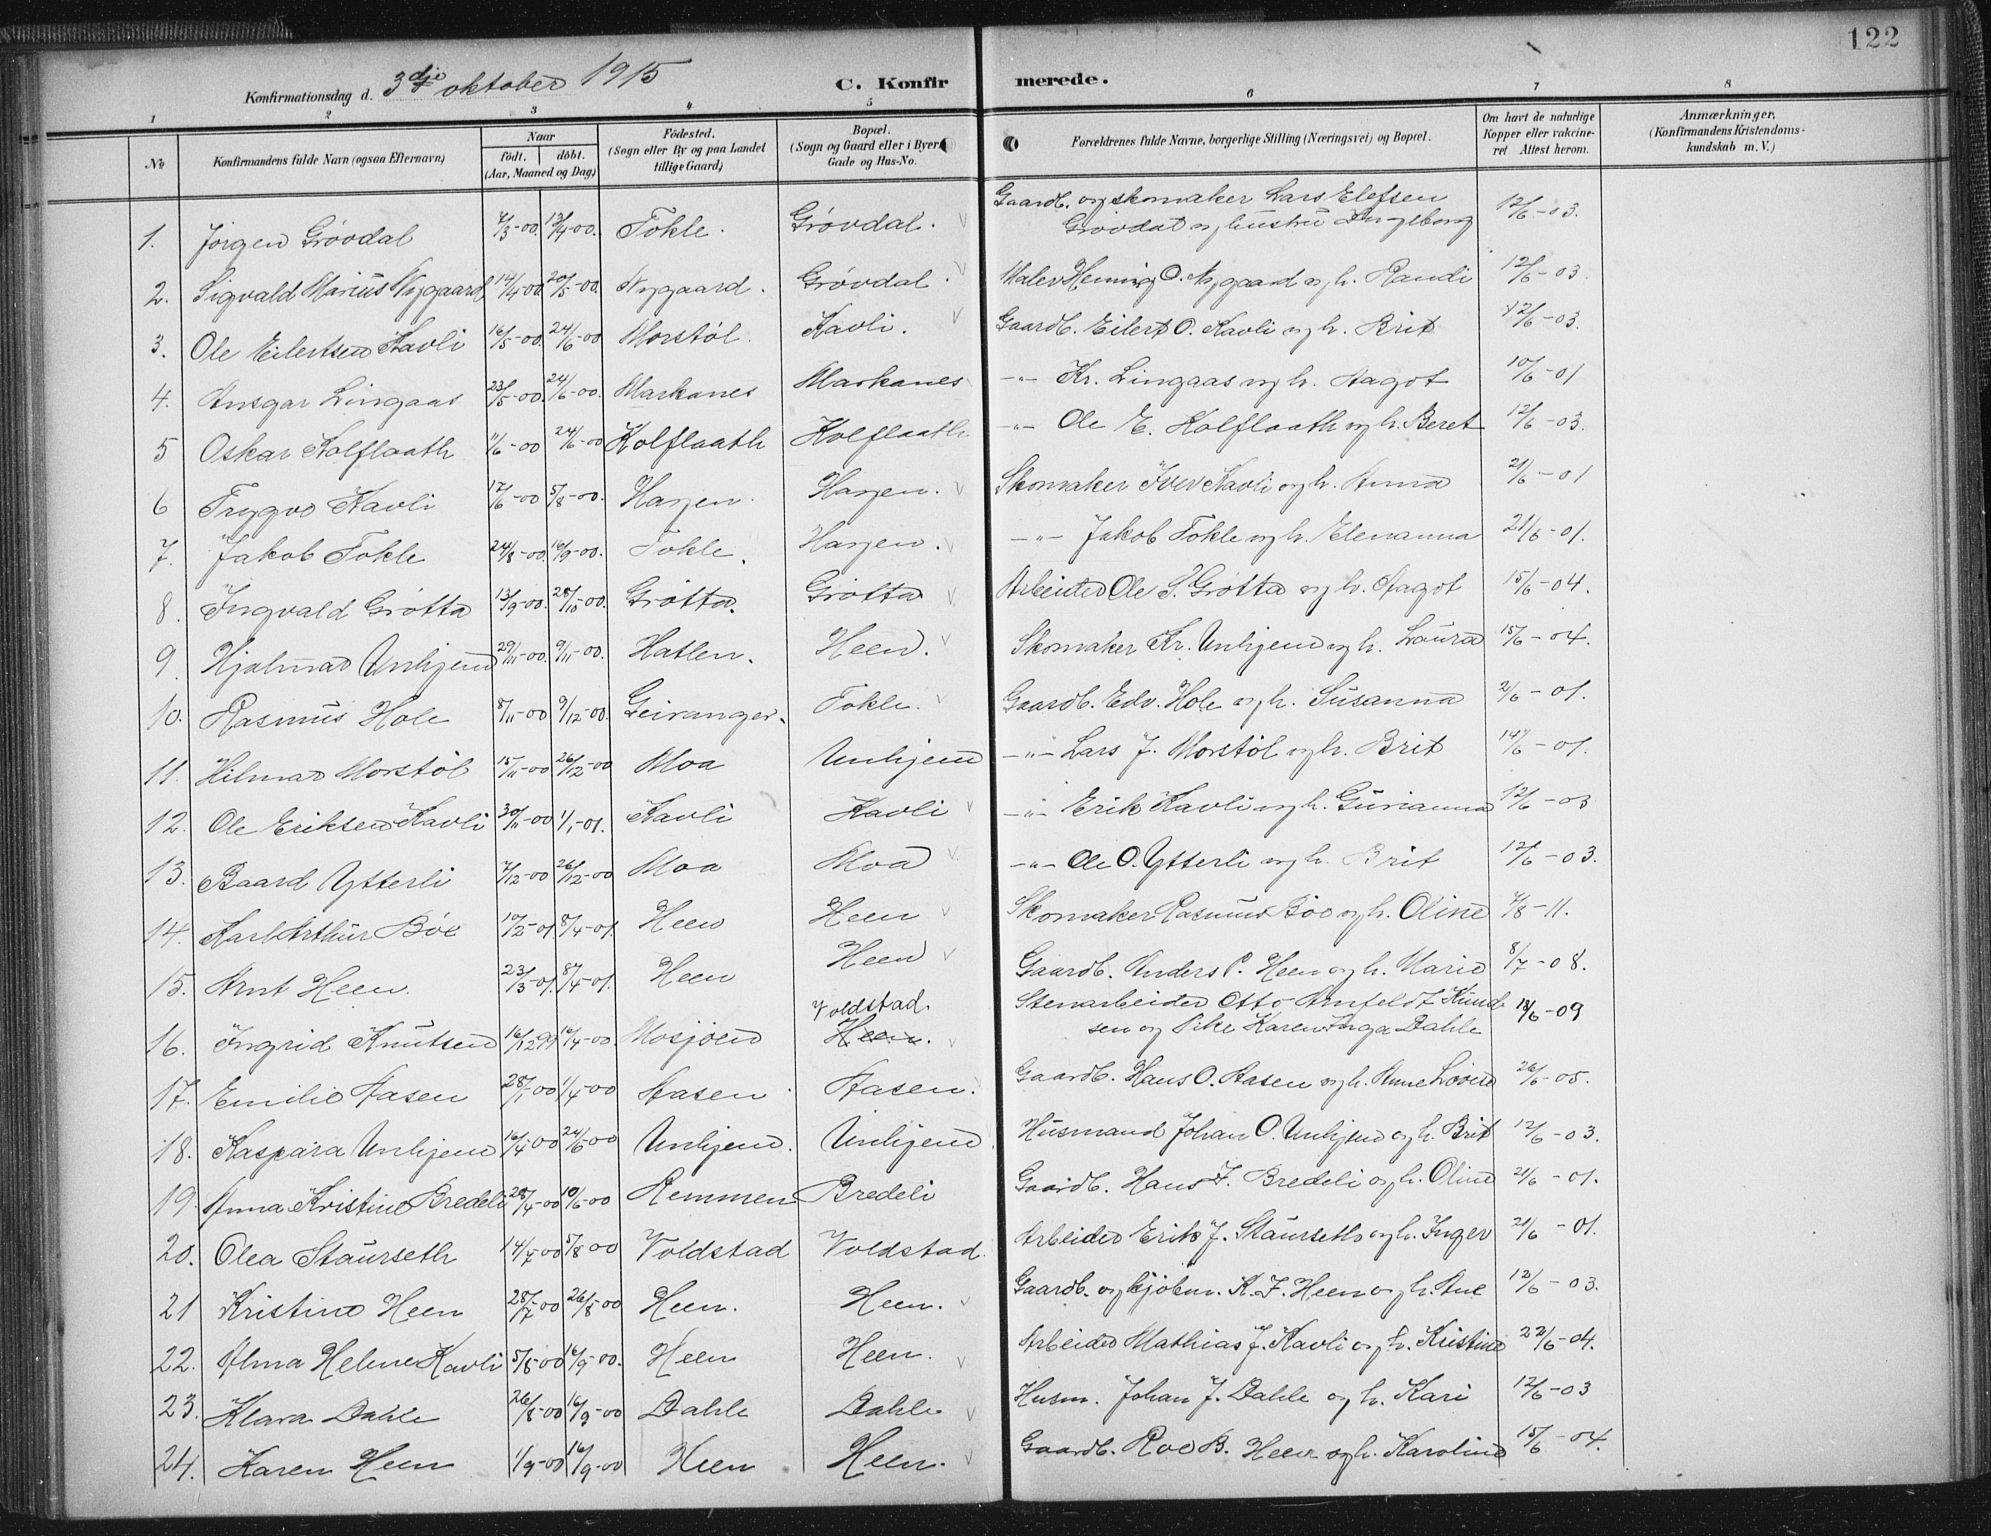 122
Konfirmationsdag d. 3dje oktober 1915 C. Konfirmerede.
1 2 3 4 5 6 7 8
No Konfirmandens fulde Navn (ogsaa Efternavn) Naar født. døbt. (Aar, Maaned og Dag) Fødested. (Sogn eller By og paa Landet tillige Gaard) Bopæl. (Sogn og Gaard eller i Byer Gade og Hus-No. Forældrenes fulde Navne, borgerlige Stilling (Næringsvei) og Bopæl. Om havt de naturlige Kopper eller vakcineret. Attest herom. Anmærkninger, (Konfirmandens Kristendomskundskab m. V.)
1. Jørgen Grøvdal 7/3-00. 13/4-00. Tokle. Grøvdal. Gaardb. og skomaker Lars Elefsen Grøvdal og hustru Ingeborg 12/6-03.
2. Sigvald Marius Nygaard 14/4-00 20/5-00. Nygaard. Grøvdal. Maler Henning O. Nygaard og h. Randi 12/6-03.
3. Ole Eilertsen Kavli 16/5-00. 24/6-00 Morstøl. Kavli. Gaardb. Eilert O. Kavli og h. Brit 12/6-03.
4. Ansgar Lingaas 23/5-00. 24/6-00. Markanes Markanes -"- Kr. Lingaas og h. Aagot 10/6-01
5 Oskar Kolflaath 11/6-00 24/6-00 Kolflaath Kolflaath -"- Ole E. Kolflaath og h. Beret 12/6-03.
6 Trygve Kavli 17/6-00 5/8-00. Hasjen. Hasjen. Skomaker Iver Kavli og h. Anna 21/6-01
7. Jakob Tokle 24/8-00. 16/9-00. Tokle. Hasjen. -"- Jakob Tokle og h. Elenanna 21/6-01.
8. Ingvald Grøtta 13/9-00. 28/10-00. Grøtta. Grøtta Arbeider Ole S. Grøtta og h. Aagot 15/6-04.
9. Hjalmar Unhjem 29/11-00. 9/11-00. Hatlen. Heen. Skomaker Kr. Unhjem og h. Laura 15/6-04.
10. Rasmus Hole 8/11-00 9/12-00. Geiranger. Tokle. Gaardb. Edv. Hole og h. Susanna 21/6-01.
11. Hilmar Morstøl 15/11-00 26/12-00 Moa Unhjem -"- Lars J. Morstøl og h. Brit 14/6-01.
12. Ole Eriksen Kavli 30/11-00 1/1-01. Kavli Kavli -"- Erik Kavli og h. Gurianna 12/6-03
13. Baard Ytterli 7/12-00 26/12-00 Moa Moa -"- Ole O. Ytterli og h. Brit 12/6-03.
14. Karl Arthur Bøe 10/2-01 8/4-01. Heen Heen Skomaker Rasmus Bøe og h. Oline 7/8-11.
15. Arnt Heen. 23/3-01. 8/4-01. Heen Heen Gaardb. Anders P. Heen og h. Marie 8/7-08.
16. Ingrid Knutsen 16/12 99 16/4-00. Mosjøen Voldstad Heen. Stenarbeider Otto Arnfeldt Knudsen og Pike Karen Inga Dahle 18/6-09
17. Emilie Aasen 28/1-00 1/4-00 Aasen Aasen. Gaardb. Hans O. Aasen og h. Anne Lovise 26/6-05.
18. Kaspara Unhjem 16/4-00 24/6-00 Unhjem. Unhjem Husmand Johan O. Unhjem og h. Brit 12/6-03.
19. Anna Kristine Bredeli 28/4-00 10/6-00 Remmem Bredeli Gaardb. Hans J. Bredeli og h. Oline 21/6-01.
20. Olea Staurseth 14/7-00 5/8 00 Voldstad Voldstad. Arbeider Erik J. Staurseth og h. Inger 21/6-01.
21 Kristine Heen 28/7-00 26/8 00 Heen. Heen. Gaardb. og kjøbm. K. J. Heen og h. Ane 12/6-03.
22. Alma Helene Kavli 5/8-00 16/9-00. Heen Heen. Arbeider Mathias J. Kavli og h. Kristine 22/6-04.
23. Klara Dahle 26/8-00 16/9-00 Dahle Dahle Husm. Johan J. Dahle og h. Kari 12/6-03
24. Karen Heen 1/9-00 16/9-00 Heen Heen. Gaardb. Roe B. Heen og h. Karoline 15/6-04.